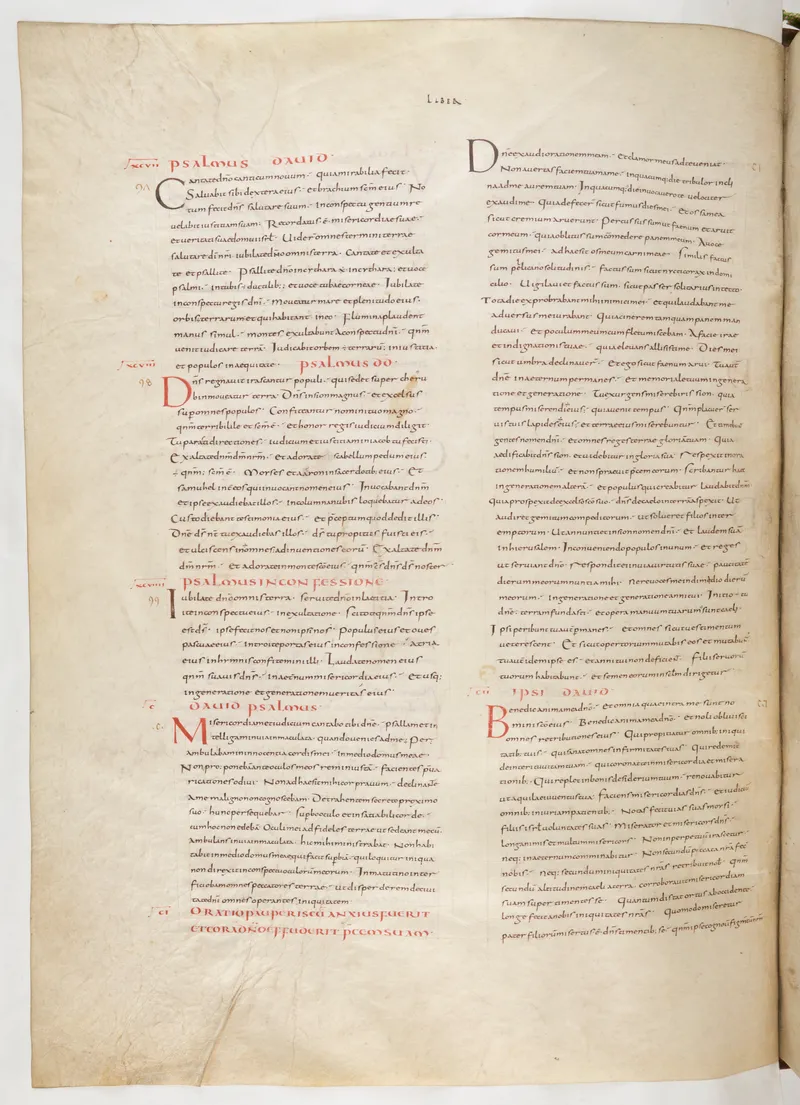 LIBER
xcvii PSALMUS DAVID
98 Cantate dno canticum nouum · quia mirabilia fecit ·
Saluabit sibi dextera eius · et brachium scm eius · No
tum fecit dns salutare suum · In conspectu gentium re
uelabit iustitiam suam · Recordatus ē misericordiae suae ·
et ueritatis suae domui isrl · Uider omnes termini terrae
salutare di nri · iubilate dno omnis terra · Cantate et exulta
te et psallite · Psallite dno in cithara & in cithara · et uoce
psalmi · in tubis ductilib; · et uoce tubae corneae · Iubilate
in conspectu regis dni · Moueatur mare et plenitudo eius ·
orbis terrarum et qui habitant in eo · Flumina plaudent
manus simul · montes exultabunt a conspectu dni · qnm
uenit iudicare terrā · Iudicabit orbem terrarū in iustitia ·
xcviii et populos in aequitate · PSALMUS DD
98 Dns regnauit irascantur populi · qui sedet super cheru
bin moueatur terra · Dns in sion magnus · et excelsus
super omnes populos · Confiteantur nomini tuo magno ·
qnm terribile et scm ē · et honor regis iudicium diligit ·
Tu parasti directiones · iudicium et iustitiam in iacob tu fecisti ·
Exaltate dnm dm nrm · et adorate scabellum pedum eius
qnm scm ē · Moyses et aaron in sacerdotib; eius · Et
samuhel inter eos qui inuocant nomen eius · Inuocabant dnm
et ipse exaudiebat illos · in columna nubis loquebatur ad eos ·
Custodiebant testimonia eius · et pceptum quod dedit illis ·
Dne ds nr tu exaudiebas illos · ds tu propitius fuisti eis ·
et ulciscens in omnes adinuentiones eorū · Exaltate dnm
dm nrm · et adorate in monte sco eius · qnm scs dns ds noster ·
xcviiii PSALMUS IN CONFESSIONE
99 Iubilate dno omnis terra · seruite dno in laetitia · Intro
ite in conspectu eius · in exultatione · Scitote qnm dns ipse
est ds · ipse fecit nos et non ipsi nos · Populus eius et oues
pascuae eius · Introite portas eius in confessione · Atria
eius in hymnis confitemini illi · Laudate nomen eius
qnm suauis dns · in aeternum misericordia eius · et usq;
in generatione et generationem ueritas eius ·
c DAVID PSALMUS ·
c Misericordiam et iudicium cantabo tibi dne · psallam et in
telligam in uia inmaculata · quando uenies ad me · Per
ambulabam in innocentia cordis mei · in medio domus meae ·
Non pro ponebam ante oculos meos rem iniustā · facientes pua
ricationes odiui · Non adhaesit mihi cor prauum · declinante
a me malignum non cognoscebam · Detrahentem secreto proximo
suo · hunc persequebar · Superbo oculo et insatiabili corde ·
cum hoc non edebā · Oculi mei ad fideles terrae ut sedeant mecū ·
Ambulans in uia inmaculata · hic mihi ministrabat · Non habi
tabit in medio domus meae qui facit supbiā · qui loquitur iniqua
non direxit in conspectu oculorum meorum · In matutino inter
ficiebam omnes peccatores terrae · ut disperderem de ciui
tate dni omnes operantes iniquitatem ·
ci ORATIO PAUPERIS CUM ANXIUS FUERIT
ET CORAM DNO EFFUDERIT PCEM SUAM ·
Dne exaudi orationem meam · et clamor meus ad te ueniat · ci
Non auertas faciem tuam a me · in quacumq; die tribulor incli
na ad me aurem tuam · In quacumq; die inuocauero te uelociter
exaudi me · Quia defecer sicut fumus dies mei · et ossa mea
sicut cremium aruerunt · Percussus sum ut faenum et aruit
cor meum · quia oblitus sum comedere panem meum · A uoce
gemitus mei · adhaesit os meum carni meae · Similis factus
sum pelicano solitudinis · factus sum sicut nycticorax in domi
cilio · Uigilaui et factus sum · sicut passer solitarius in tecto ·
Tota die exprobrabant mihi inimici mei · et qui laudabant me
aduersus me iurabant · Quia cinerem tamquam panem man
ducaui · et poculum meum cum fletu miscebam · A facie irae
et indignationis tuae · quia eleuans allisisti me · Dies mei
sicut umbra declinauer · et ego sicut faenum arui · Tu aut
dne in aeternum permanes · et memoriale tuum in genera
tione et generatione · Tu exurgens misereberis sion · quia
tempus miserendi eius · quia uenit tempus · Qnm placuer ser
uis tuis lapides eius · et terrae eius miserebuntur · Et timebt
gentes nomen dni · et omnes reges terrae gloriā tuam · Quia
aedificabit dns sion · et uidebitur in gloria sua · Respexit in ora
tionem humiliū · et non spreuit pcem eorum · Scribantur haec
in generationem alterā · et populus qui creabitur laudabit dnm
quia prospexit de excelso sco suo · dns de caelo in terrā aspexit · Ut
audiret gemitum conpeditorum · ut solueret filios inter
emptorum · Ut annuntiet in sion nomen dni · et laudem suā
in hierusalem · In conueniendo populos in unum · et reges
ut seruiant dno · Respondit ei in uia uirtutis suae · paucitatē
dierum meorum nuntia mihi · Ne reuoces me in dimidio dierū
meorum · In generatione et generationem anni tui · Initio tu
dne terram fundasti · et opera manuum tuarum sunt caeli ·
Ipsi peribunt tu aut pmanes · et omnes sicut uestimentum
ueterescent · Et sicut opertorium mutabis eos et mutabunt
tu aut idem ipse es · et anni tui non deficient · Filii seruorū
tuorum habitabunt · et semen eorum in sclm dirigetur ·
cii IPSI DAVID
cii Benedic anima mea dno · et omnia quae intra me sunt no
mini sco eius · Benedic anima mea dno · et noli obliuisci
omnes retributiones eius · Qui propitiatur omnib; iniqui
tatib; tuis · qui sanat omnes infirmitates tuas · Qui redemit
de interitu uitam tuam · qui coronat te in misericordia et misera
tionib; · Qui replet in bonis desiderium tuum · renouabitur
ut aquilae iuuentus tua · Faciens misericordias dns · et iudiciū
omnib; iniuriam patientib; · Notas fecit uias suas mosi ·
filiis isrl uoluntates suas · Miserator et misericors dns ·
longanimis et multum misericors · Non in perpetuū irascetur
neq; in aeternum comminabitur · Non secundū peccata nrā fecit
nobis · neq; secundum iniquitates nras retribuit nob · Qnm
secundū altitudinem caeli a terra · corroborauit misericordiam
suam super timentes se · Quantum distat ortus ab occidente ·
longe fecit a nobis iniquitates nras · Quomodo miseretur
pater filiorū misertus ē dns timentib; se · qnm ipse cognouit figmentum nrm